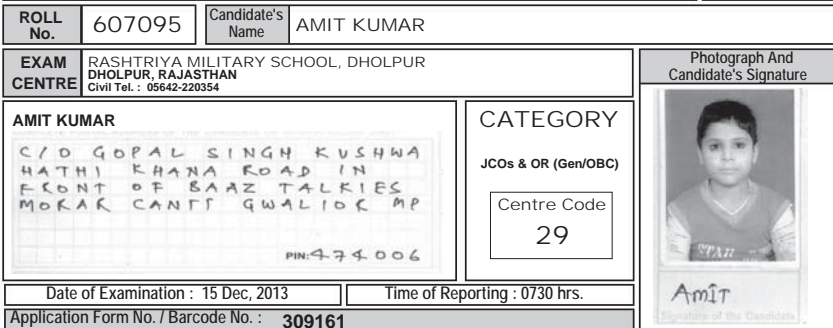 ROLL No. 607095 Candidate's Name AMIT KUMAR
EXAM CENTRE RASHTRIYA MILITARY SCHOOL, DHOLPUR
DHOLPUR, RAJASTHAN
Civil Tel. : 05642-220354
Photograph And
Candidate's Signature
AMIT KUMAR
C/O GOPAL SINGH KUSHWA
HATHI KHANA ROAD IN
FRONT OF BAAZ TALKIES
MORAR CANTT GWALIOR MP
PIN: 474006
CATEGORY
JCOs & OR (Gen/OBC)
Centre Code
29
STAU
Amit
Signature of the Candidate
Date of Examination : 15 Dec, 2013 Time of Reporting : 0730 hrs.
Application Form No. / Barcode No. : 309161